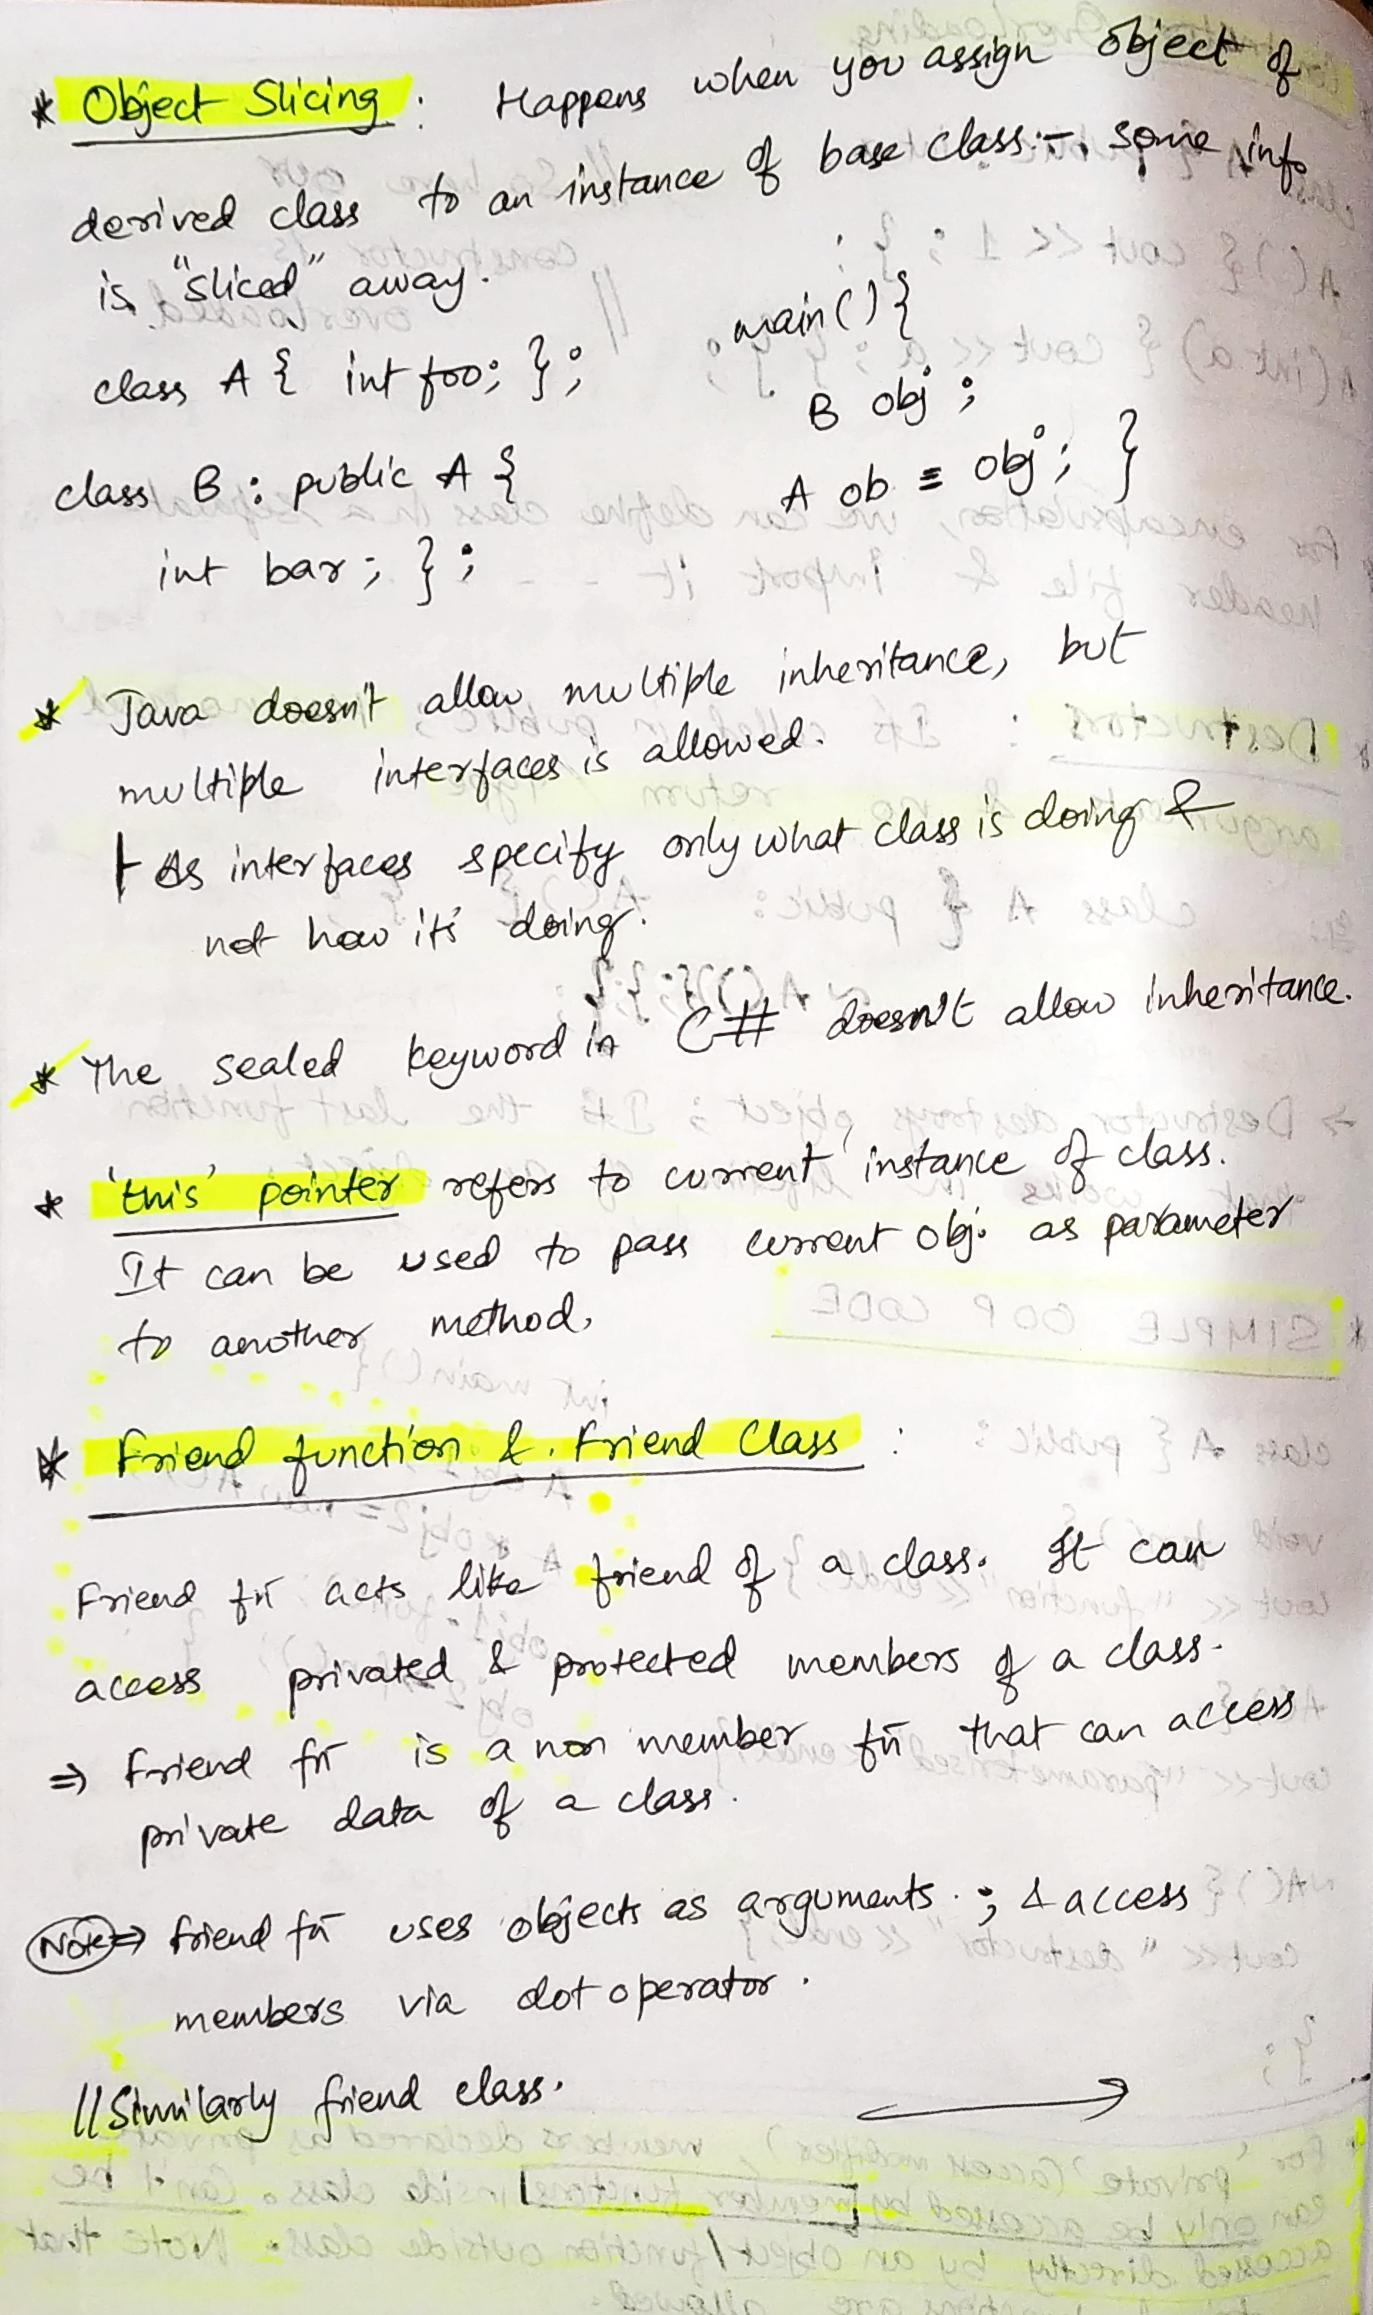 * Object Slicing : Happens when you assign object of
derived class to an instance of base class :- some info
is "sliced" away.
class A { int foo; };
class B : public A {
int bar; };
main() {
B obj ;
A ob = obj ; }
* Java doesn't allow multiple inheritance, but
multiple interfaces is allowed.
As interfaces specify only what class is doing &
not how it's doing.
* The sealed keyword in C# doesn't allow inheritance.
* 'this' pointer refers to current instance of class.
It can be used to pass current obj. as parameter
to another method.
* Friend function & Friend Class :
Friend fn acts like friend of a class. It can
access privated & protected members of a class.
⇒ Friend fn is a non member fn that can access
private data of a class.
Note ⇒ friend fn uses objects as arguments . ; & access
members via dot operator .
// Similarly friend class. →